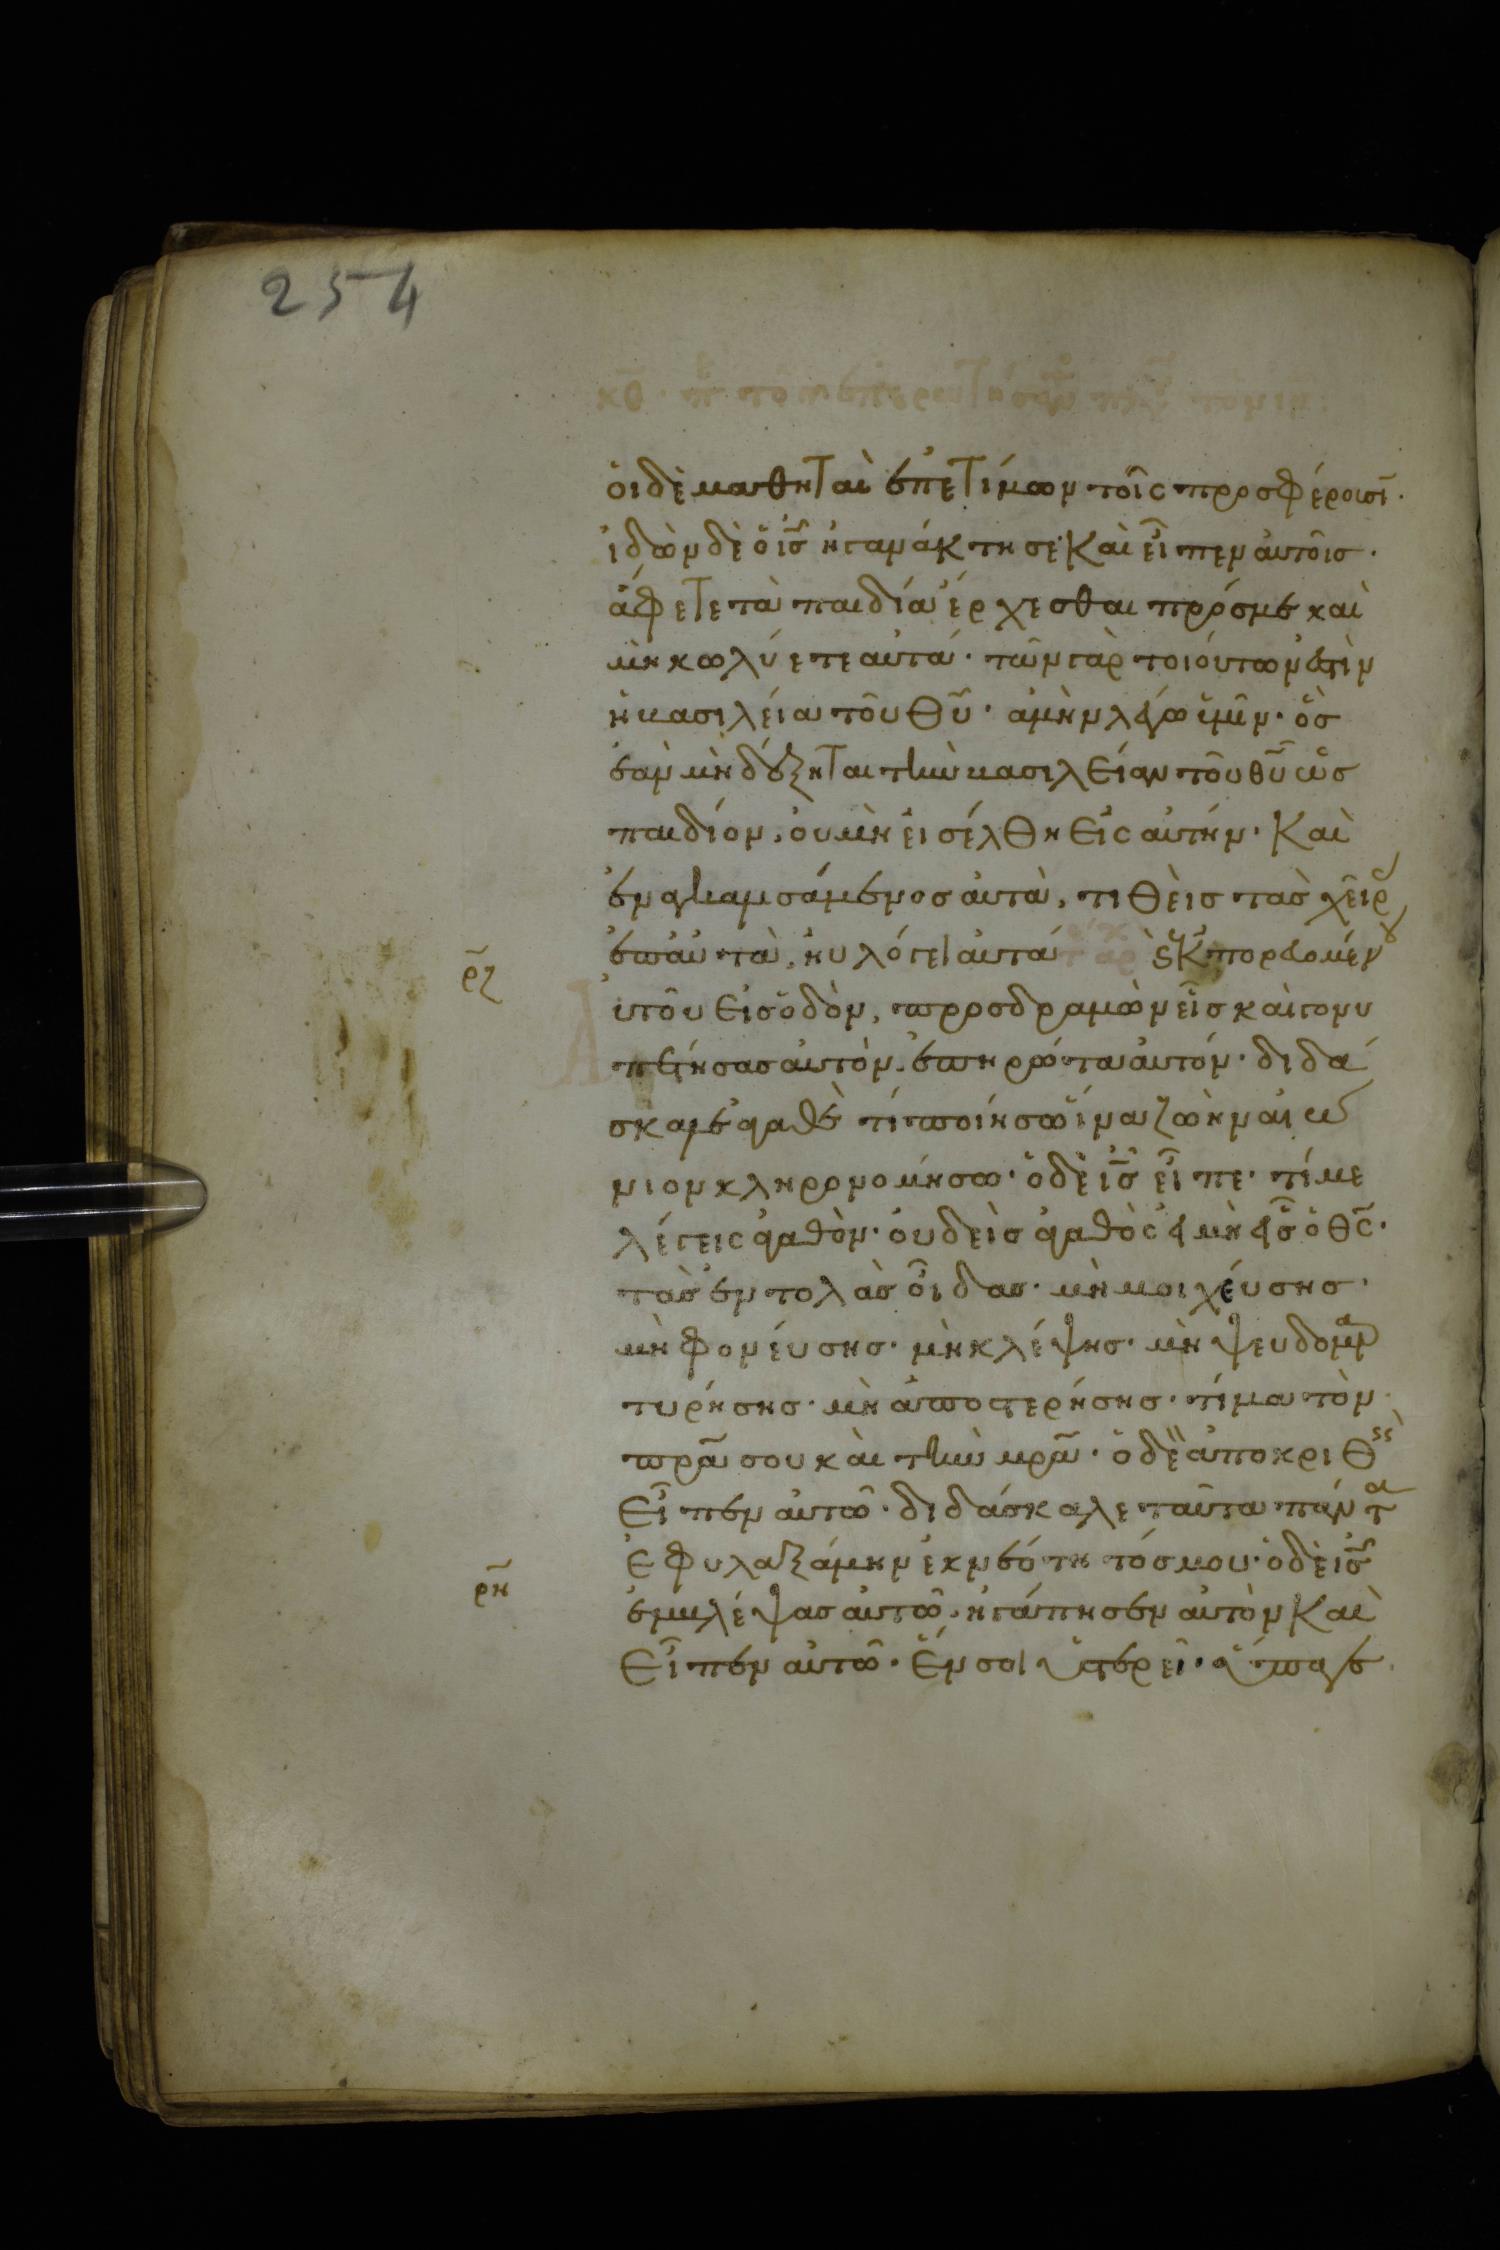 254
κθ
ὁι δὲ μαθηταὶ ἐπετίμων τοῖς προσφέρουσῖ·
ἰδὼν δὲ ὁ ις̅ ἠγανάκτησε· καὶ εἶπεν ἀυτοῖσ·
ἄφετε τὰ παιδία ἔρχεσθαι πρόσ με καὶ
μὴ κωλύετε αὐτά· τῶν γὰρ τοιούτων ἐστὶν
ἡ βασιλεία τοῦ θυ̅· ἀμὴν λέγω ὑμῖν· ὃσ
ἐὰν μὴ δέξηται τὴν βασιλείαν τοῦ θυ̅ ὡσ
παιδίον, ὀυ μὴ εἰσέλθη εἰς αὐτήν· καὶ
ἐναγκαλισάμενοσ ἀυτὰ, τιθεὶσ τὰσ χεῖρ
ἐπ' ἀυτὰ, ηυλόγει ἀυτά ϗ ἐκπορευομένου
ρζ
ἀυτοῦ εἰσ ὁδὸν, προσδραμὼν εἷσ καὶ γονυ
πετήσασ αὐτὸν, ἐπηρώτα ἀυτόν· διδά
σκαλε ἀγαθὲ τί ποιήσω ἵνα ζωὴν αἰώ
νιον κληρονομήσω· ὁ δὲ ις̅ εἶπε· τί με
λέγεις ἀγαθὸν· ὀυδεὶσ ἀγαθὸς εἰ μὴ εἷσ ὁ θς̅·
τὰσ ἐντολὰσ οἶδασ· μὴ μοιχέυσησ·
μὴ φονέυσησ· μὴ κλέψησ· μὴ ψευδομαρ
τυρήσησ· μὴ ἀποστερήσησ· τίμα τὸν
πρα̅ σου καὶ τὴν μρα̅· ὁ δὲ ἀποκριθεὶς
εἶπεν ἀυτῶ· διδάσκαλε ταῦτα πάντα
ἐφυλαξάμην ἐκ νεότητόσ μου· ὁ δὲ ις̅
ρη
ἐμβλέψασ αὐτῶ, ἠγάπησεν αὐτὸν καὶ
εἶπεν αὐτῶ· ἕν σοι ὑστερεῖ· ὕπαγε